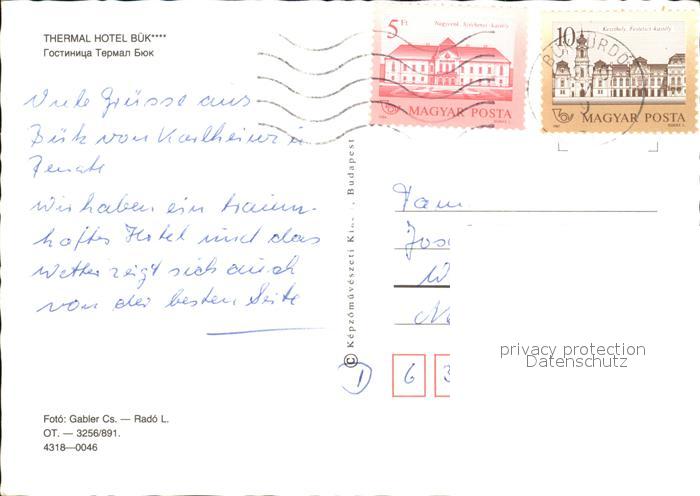 THERMAL HOTEL BÜK****
Гостиница Термал Бюк
5 Ft
Nagycenk, Széchenyi-kastély
MAGYAR POSTA
10 Ft
Keszthely, Festetics-kastély
MAGYAR POSTA
Viele Grüsse aus
Bük von Karlheinz u
Renate
wir haben ein traum-
haftes Hotel und das
Wetter zeigt sich auch
von der besten Seite
© Képzőművészeti Ki Budapest
Fam
Jos
W
D 6 3
privacy protection
Datenschutz
Fotó: Gabler Cs. — Radó L.
OT. — 3256/891.
4318—0046